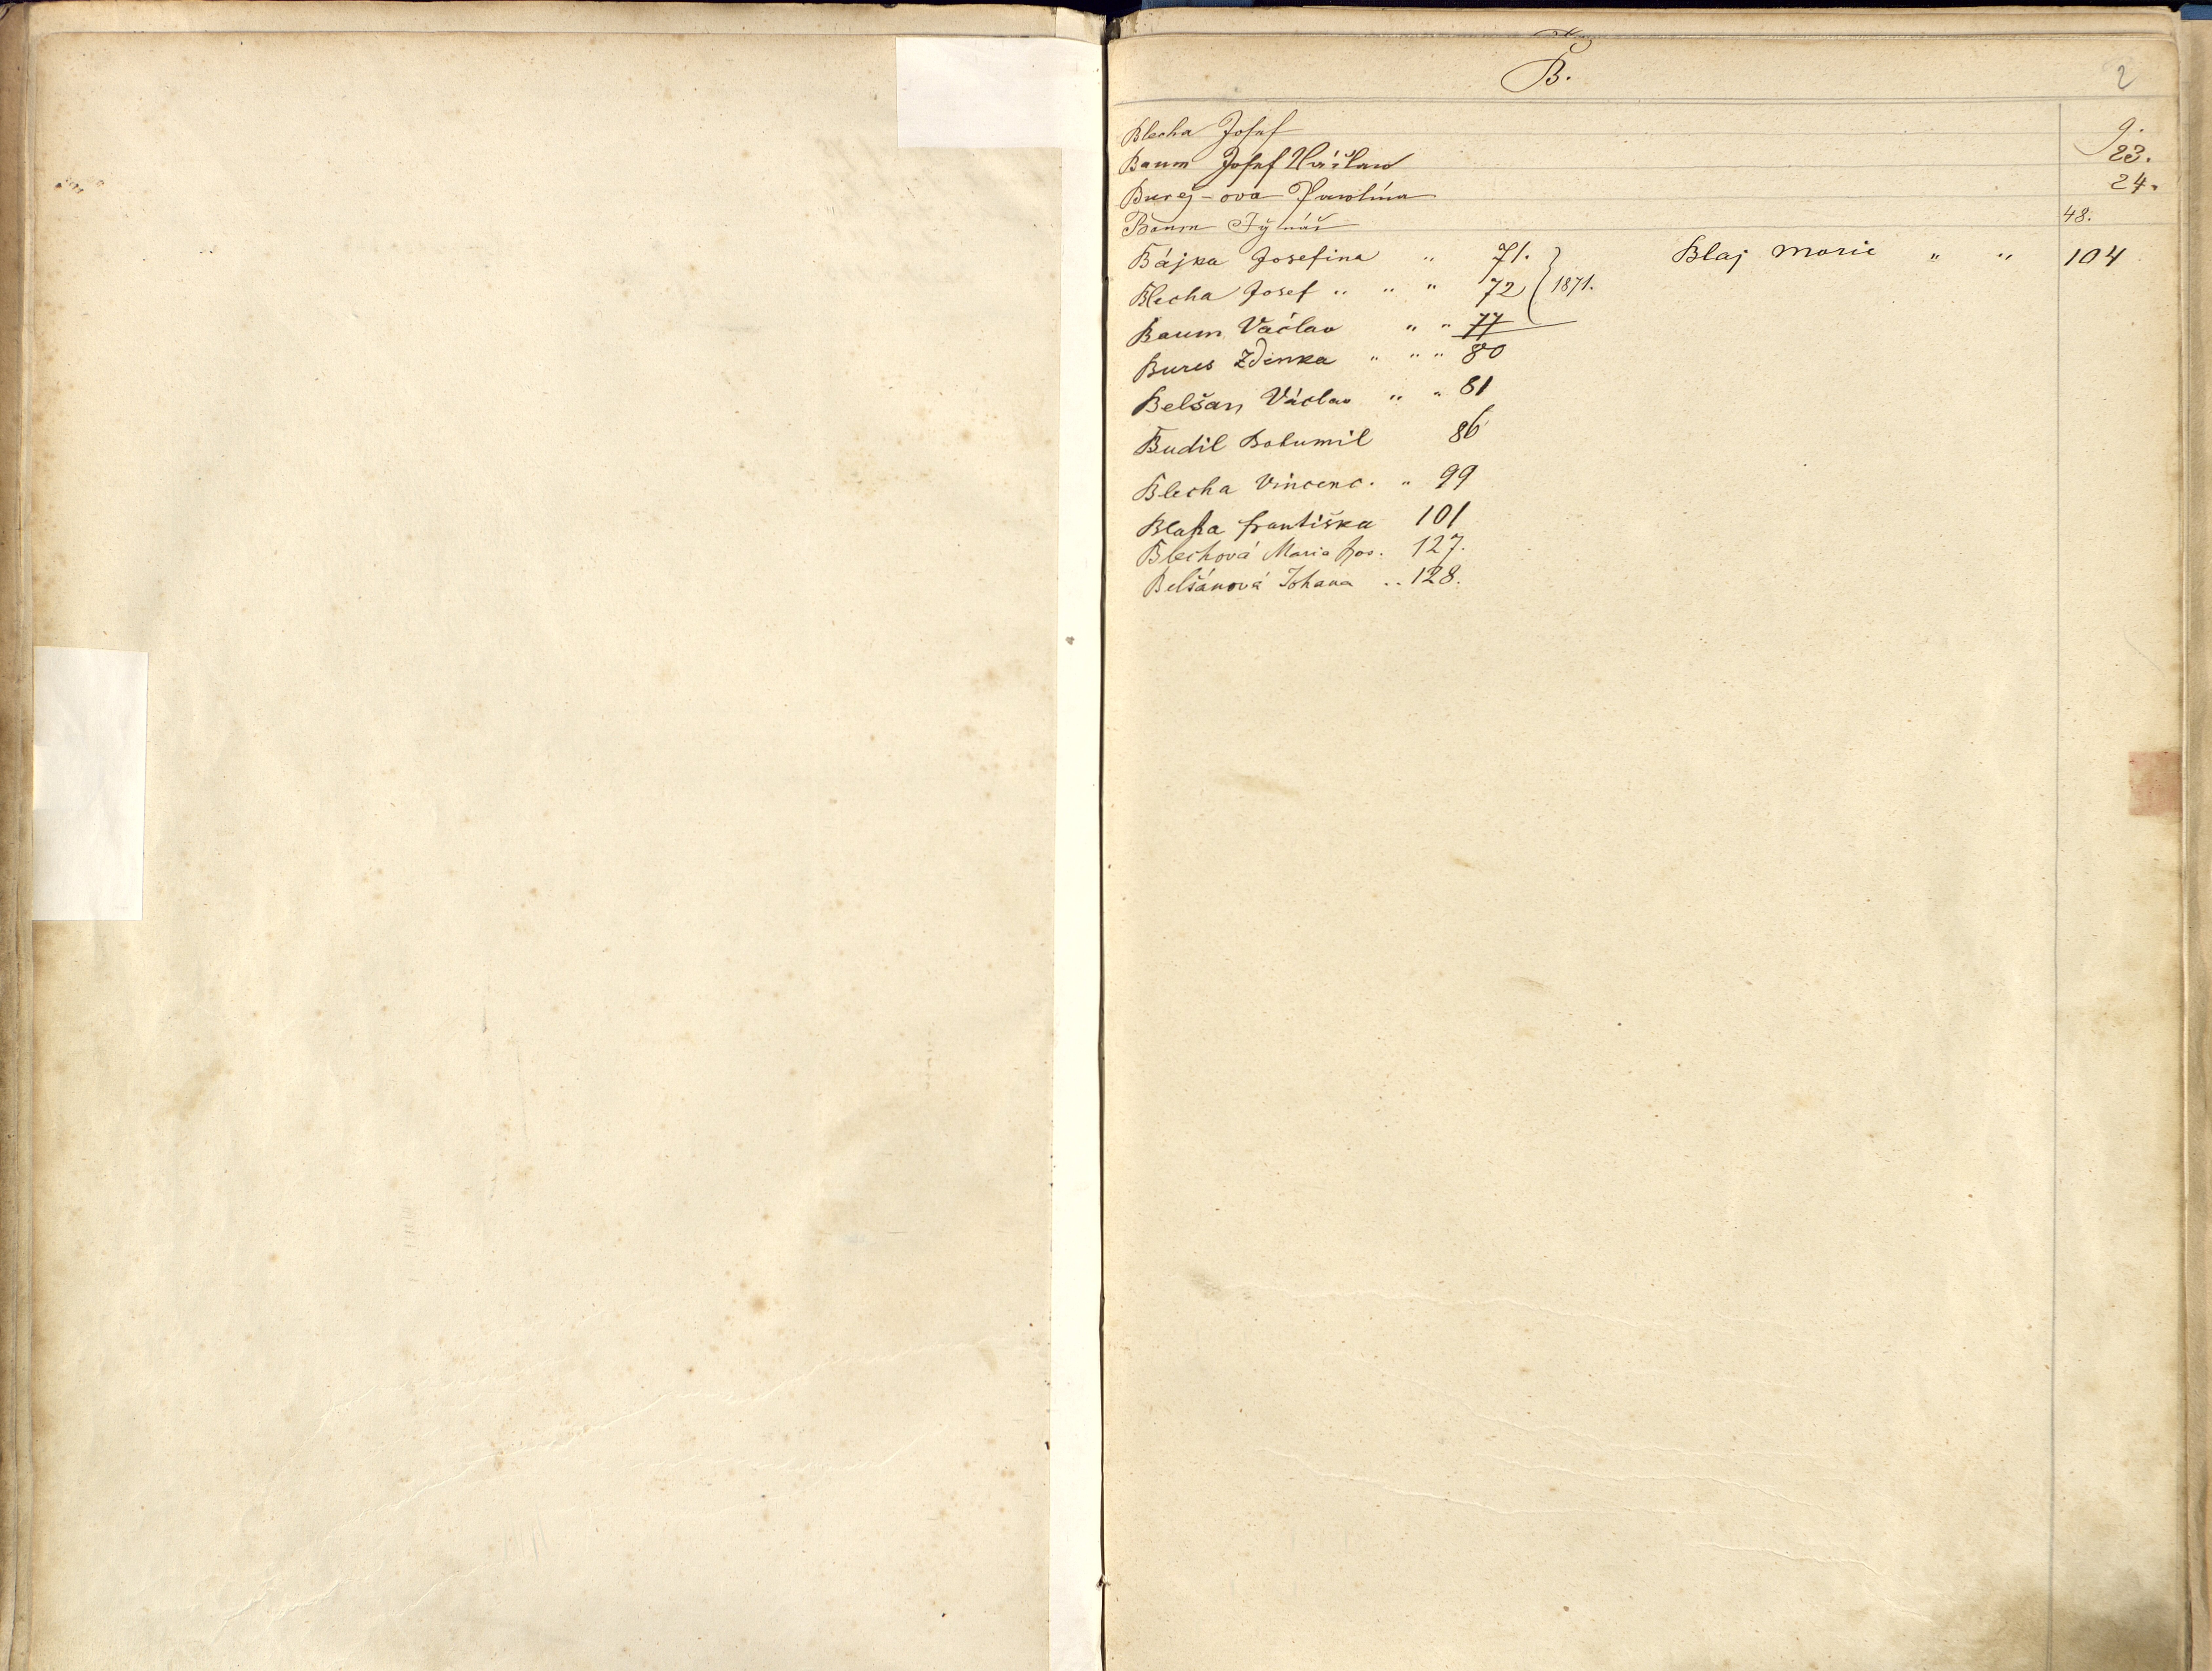 B.
2
Blecha Josef 9.
Baum Josef Václav 23.
Bureš-ova Karolína 24.
Baum Hynáš 48.
Bájka Josefina " 71.
Blaj Moric " " 104
Blecha Josef " " " 72 1871.
Baum Václav " " 77
Bures Zdenka " " " 80
Belšan Václav " " 81
Budil Bohumil 86
Blecha Vincenc. " 99
Blaha Františka 101
Blechová Marie Jos. 127.
Belšánová Johana .. 128.